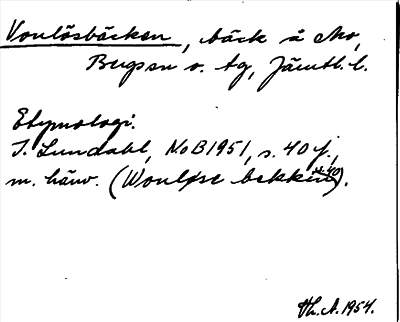 Vonlösbäcken, bäck å Mo,
Bugsen o. tg, Jämtl. l.
Etymologi.
I. Lundahl, NoB 1951, s. 40 f.,
m. hänv. (Wonløse bekkin s. 40).
Th. A. 1954.